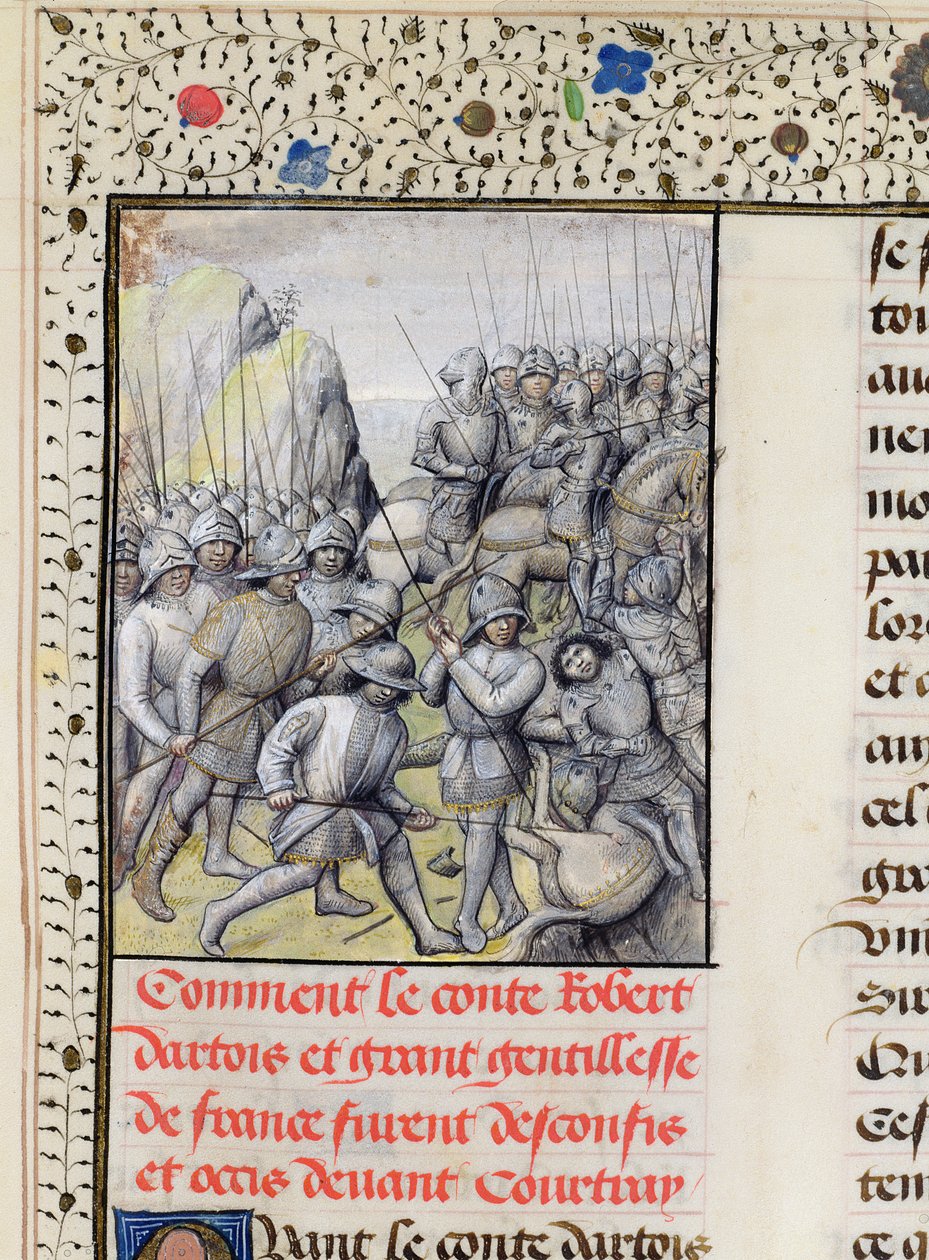 Comment le conte Robert
dartois et grant gentillesse
de france furent desconfis
et occis devant Courtray
Quant le conte dartois
se
tou
mo
par
et
cel
gra
Sir
Ces
tem